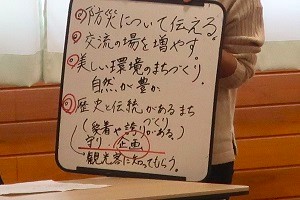 ◎防災について伝える。
◎交流の場を増やす。
◎美しい環境のまちづくり
自然が豊か
◎歴史と伝統があるまち
づくり
(愛着や誇りがある。)
守り・企画
観光客に知ってもらう。